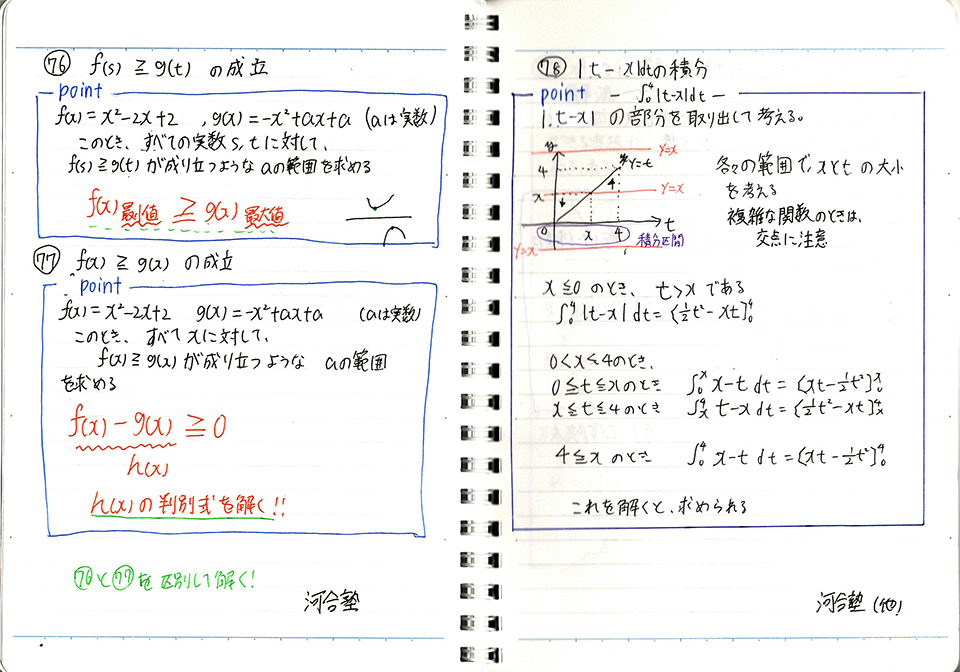 76 f(s) ≧ g(t) の成立
point
f(x) = x²-2x+2 , g(x) = -x²+ax+a (aは実数)
このとき、すべての実数s,tに対して、
f(s) ≧ g(t) が成り立つような aの範囲を求める
f(x)最小値 ≧ g(x)最大値
77 f(x) ≧ g(x) の成立
point
f(x) = x²-2x+2 g(x) = -x²+ax+a (aは実数)
このとき、すべてxに対して、
f(x) ≧ g(x) が成り立つような aの範囲
を求める
f(x) - g(x) ≧ 0
h(x)
h(x) の判別式を解く!!
76と77を区別して解く!
河合塾
78 |t-x|dtの積分
point - ∫₀⁴|t-x|dt -
|t-x| の部分を取り出して考える。
y
y=x
4
y=t
x
y=x
0 x 4 t
積分区間
y=x
各々の範囲で、xとt の大小
を考える
複雑な関数のときは、
交点に注意
x≦0 のとき、 t>x である
∫₀⁴|t-x|dt = [½t²-xt]₀⁴
0<x≦4のとき、
0≦t≦xのとき ∫₀ˣ x-t dt = [xt-½t²]₀ˣ
x≦t≦4のとき ∫ₓ⁴ t-x dt = [½t²-xt]ₓ⁴
4≦x のとき ∫₀⁴ x-t dt = [xt-½t²]₀⁴
これを解くと、求められる
河合塾 (他)